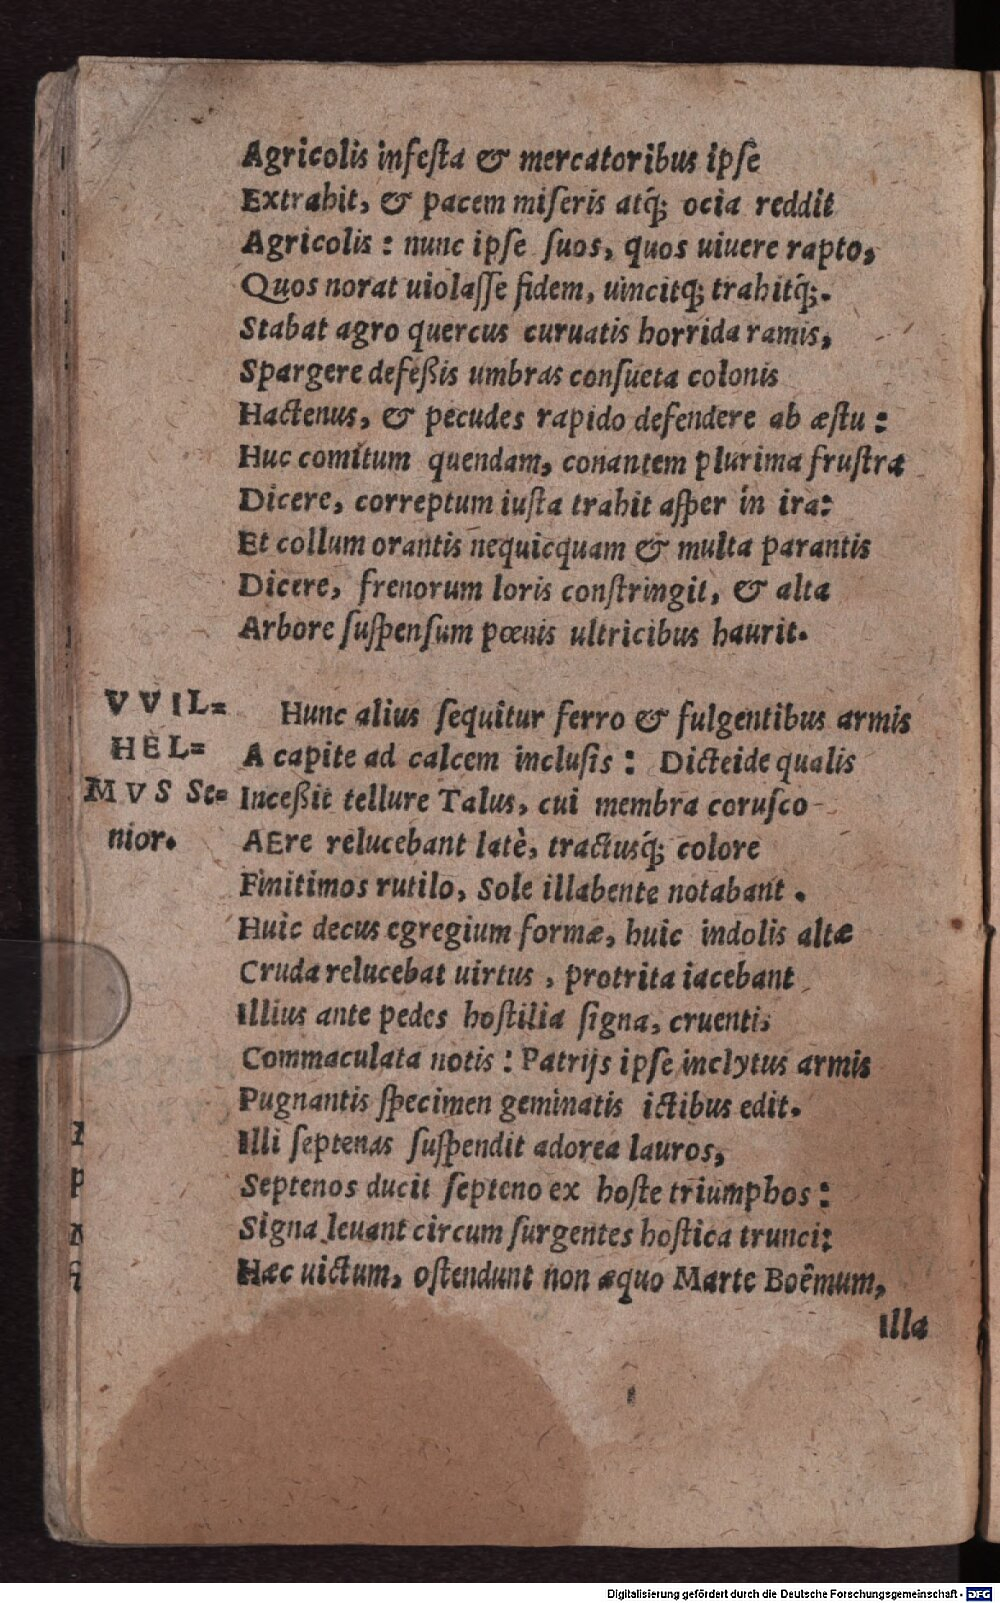 Agricolis infesta & mercatoribus ipse
Extrahit, & pacem miseris atq́; ocia reddit
Agricolis: nunc ipse suos, quos uiuere rapto,
Quos norat uiolasse fidem, uincitq; trahitq́;.
Stabat agro quercus curuatis horrida ramis,
Spargere defeßis umbras consueta colonis
Hactenus, & pecudes rapido defendere ab æstu:
Huc comitum quendam, conantem plurima frustra
Dicere, correptum iusta trahit asper in ira:
Et collum orantis nequicquam & multa parantis
Dicere, frenorum loris constringit, & alta
Arbore suspensum pœnis ultricibus haurit.
VVIL=
HEL=
MVS Se=
nior.
Hunc alius sequitur ferro & fulgentibus armis
A capite ad calcem inclusis: Dicteide qualis
Inceßit tellure Talus, cui membra corusco
AEre relucebant latè, tractusq́; colore
Finitimos rutilo, Sole illabente notabant.
Huic decus egregium formæ, huic indolis altæ
Cruda relucebat uirtus, protrita iacebant
Illius ante pedes hostilia signa, cruentis
Commaculata notis: Patrijs ipse inclytus armis
Pugnantis specimen geminatis ictibus edit.
Illi septenas suspendit adorea lauros,
Septenos ducit septeno ex hoste triumphos:
Signa leuant circum surgentes hostica trunci:
Hæc uictum, ostendunt non æquo Marte Boêmum,
Illa
Digitalisierung gefördert durch die Deutsche Forschungsgemeinschaft - DFG